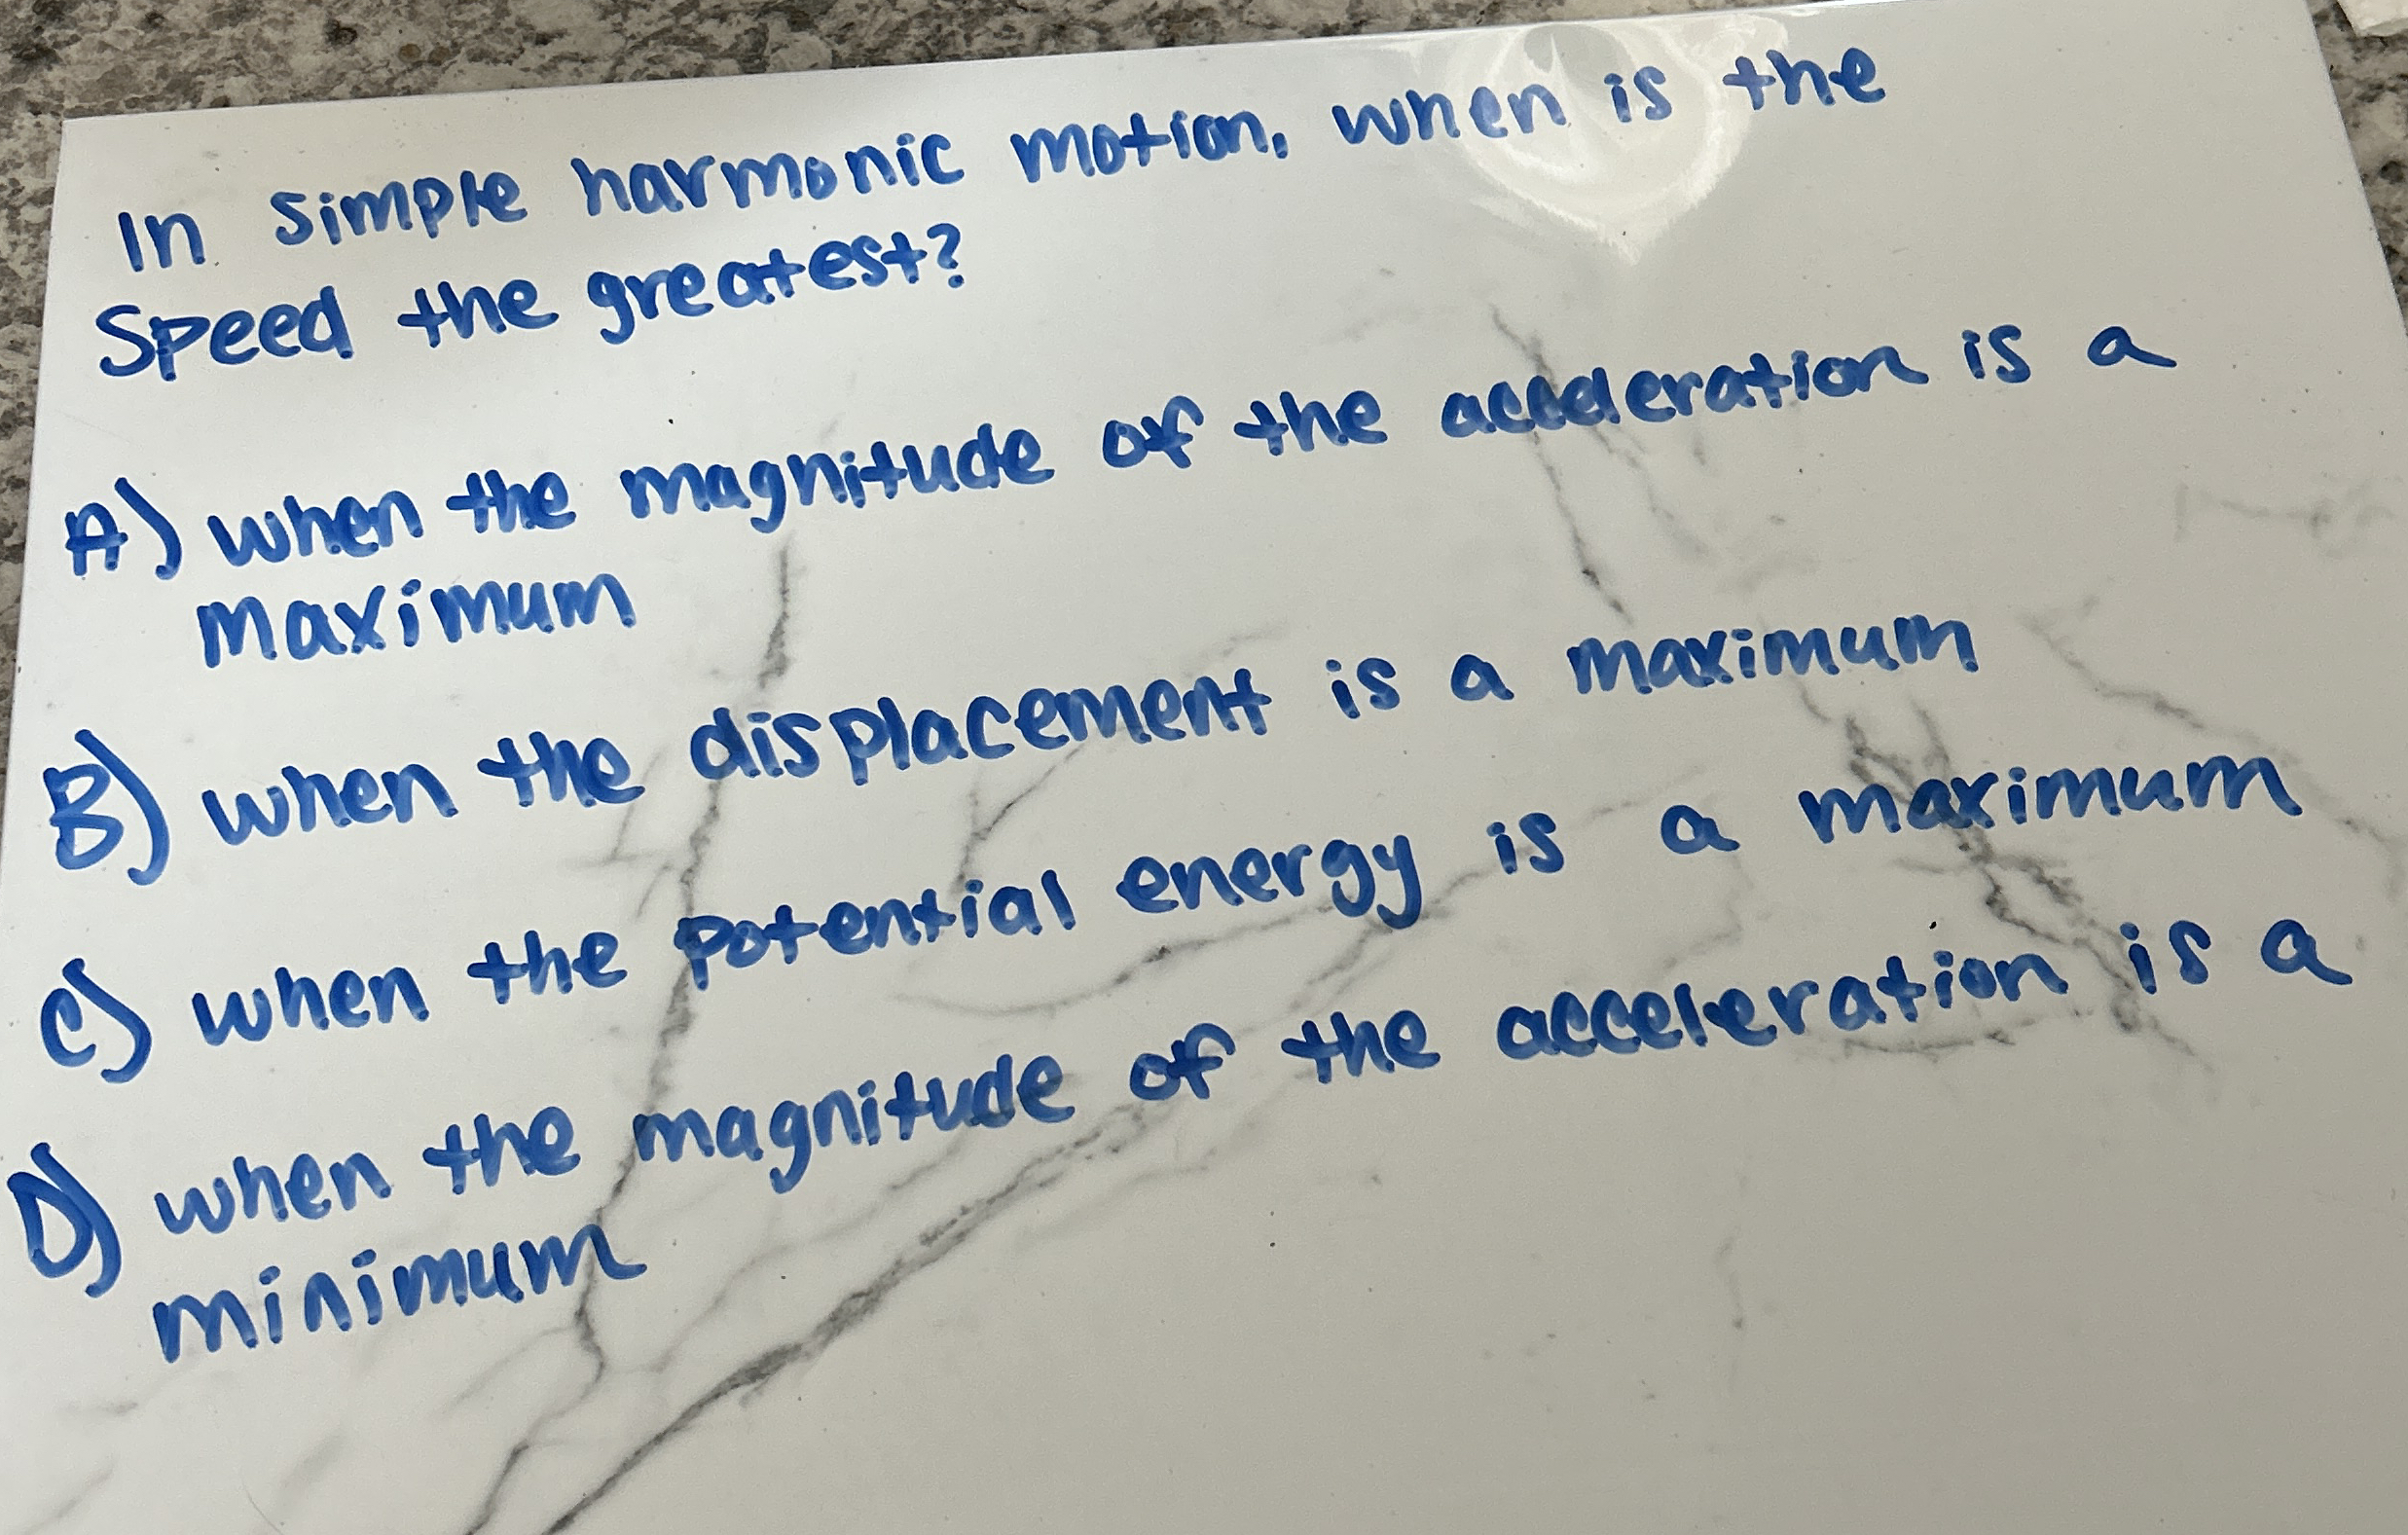 In simple harmonic motion, when is the
Speed the greatest?
A) when the magnitude of the acceleration is a
maximum
B) when the displacement is a maximum
C) when the potential energy is a maximum
D) when the magnitude of the acceleration is a
minimum